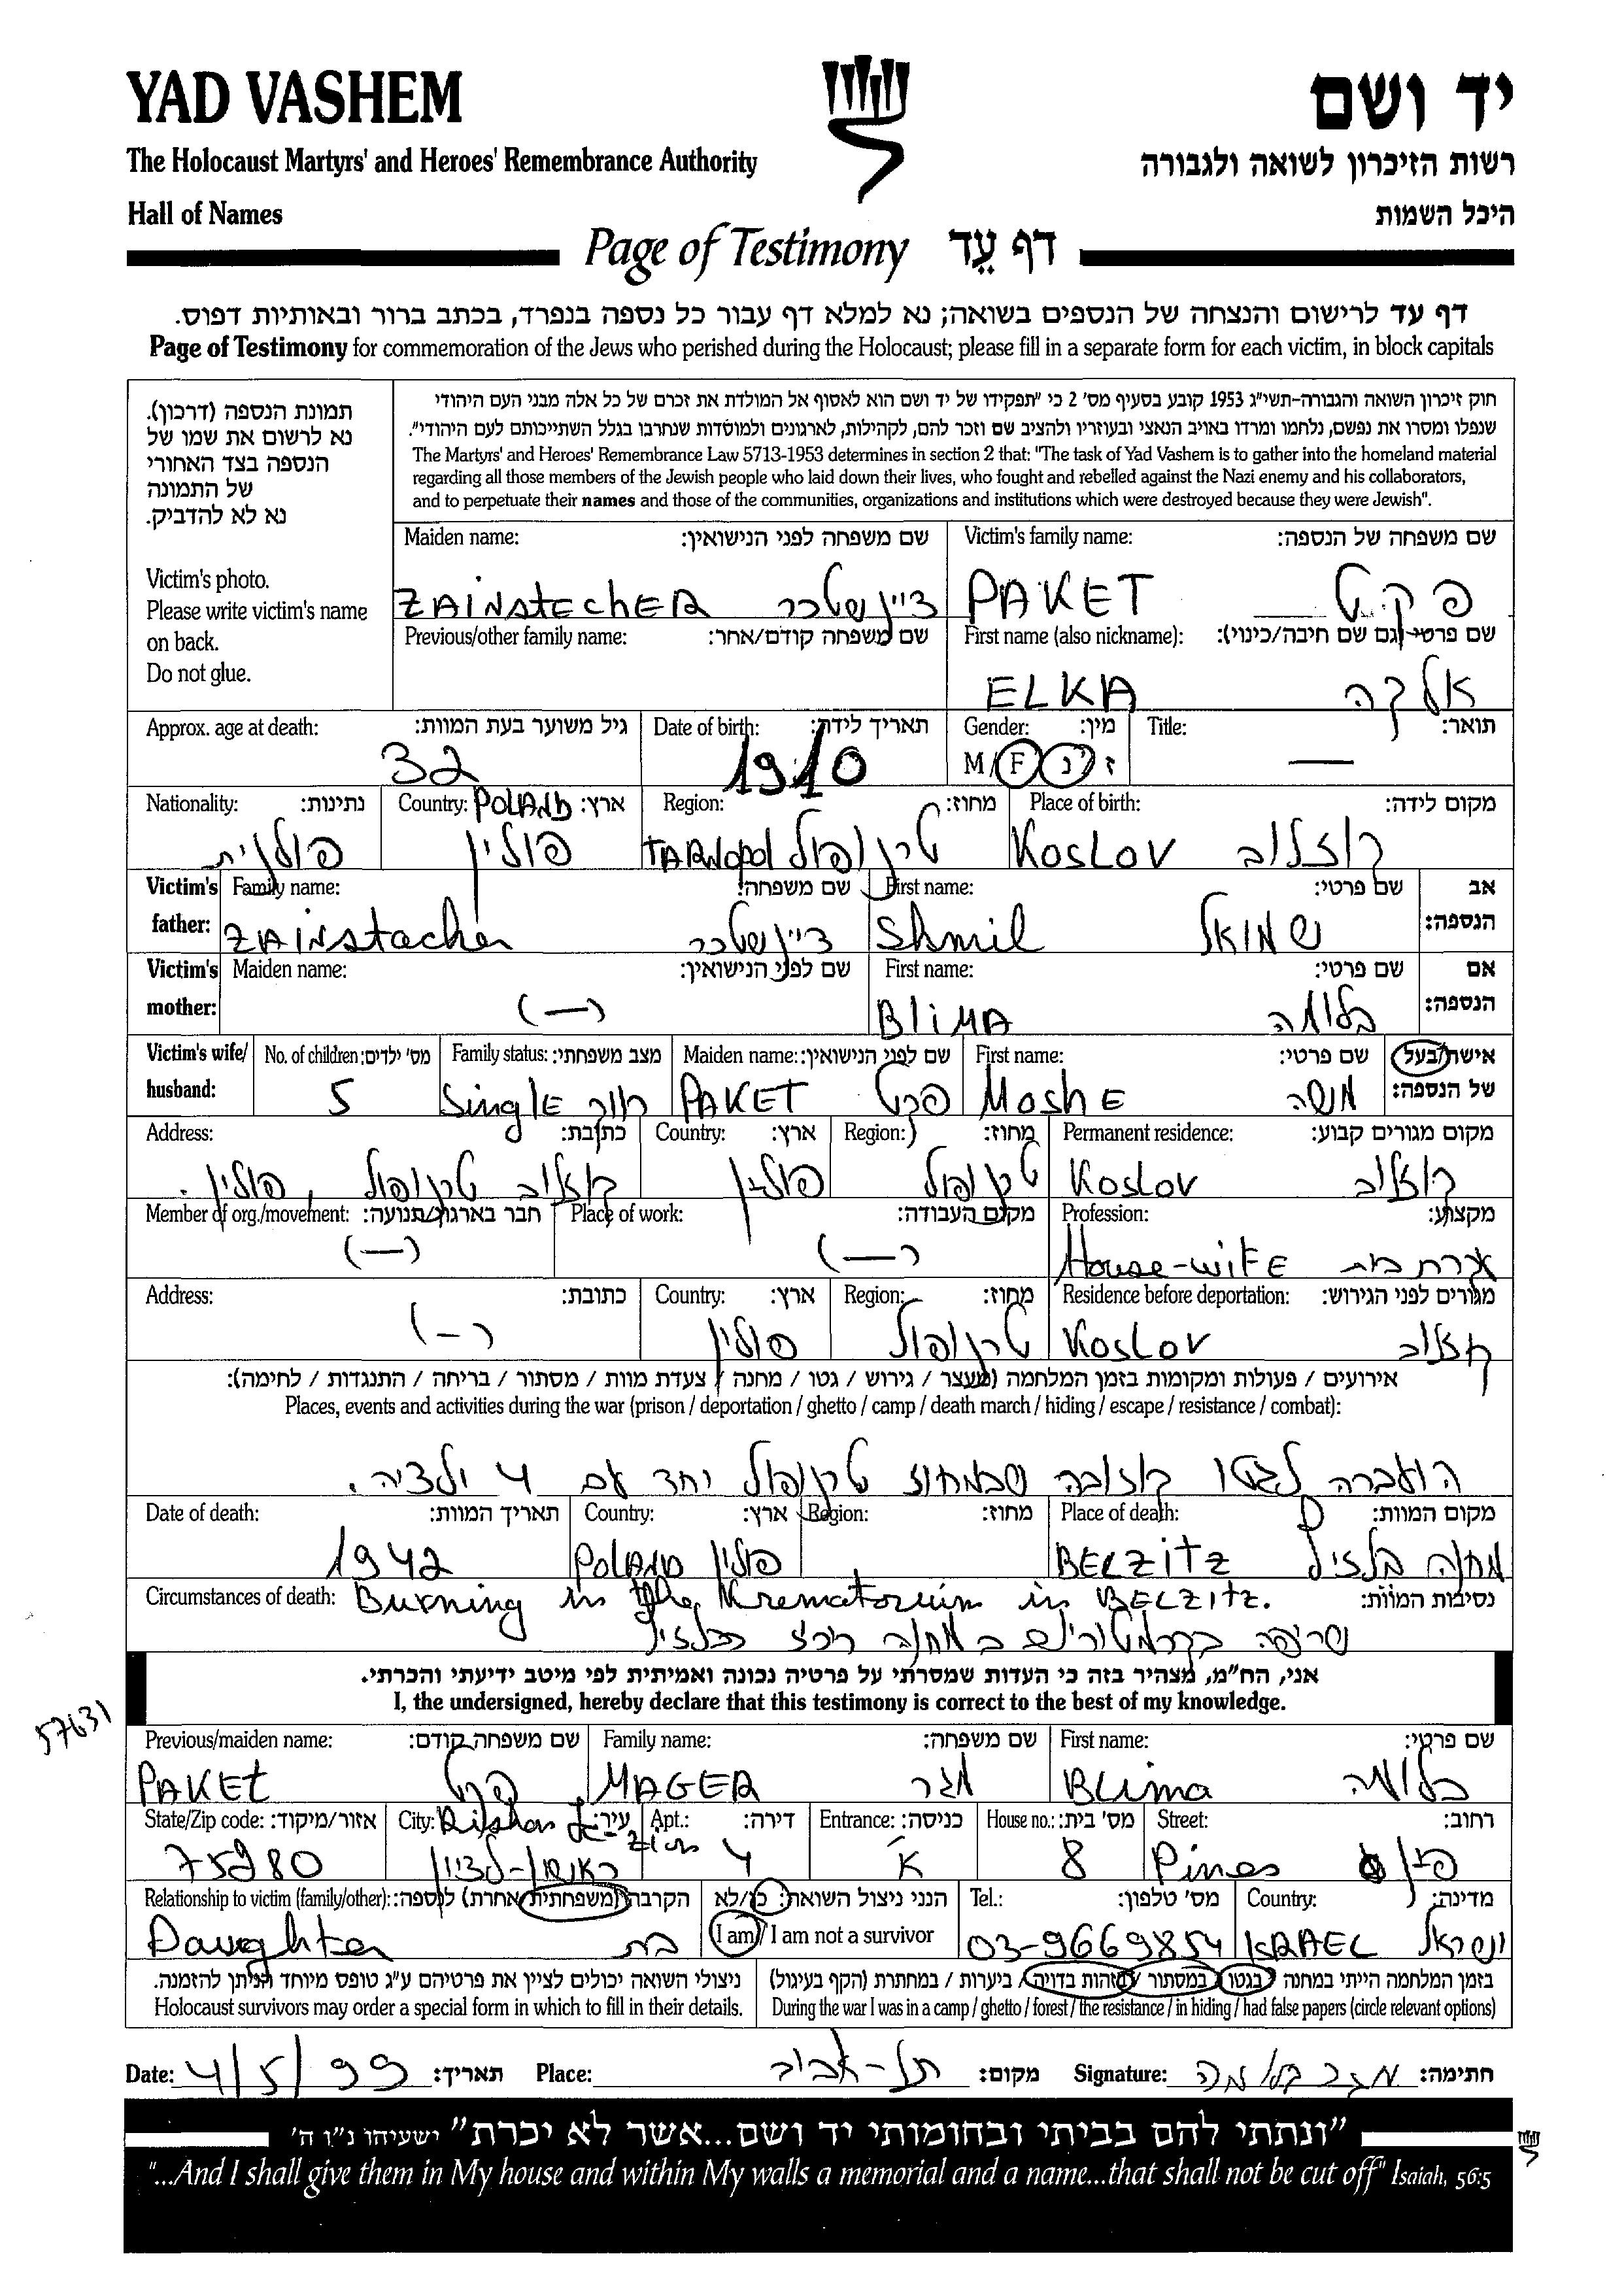 YAD VASHEM
יד ושם
The Holocaust Martyrs' and Heroes' Remembrance Authority
רשות הזיכרון לשואה ולגבורה
Hall of Names
היכל השמות
Page of Testimony דף עֵד
דף עד לרישום והנצחה של הנספים בשואה; נא למלא דף עבור כל נספה בנפרד, בכתב ברור ובאותיות דפוס.
Page of Testimony for commemoration of the Jews who perished during the Holocaust; please fill in a separate form for each victim, in block capitals
תמונת הנספה (דרכון).
נא לרשום את שמו של
הנספה בצד האחורי
של התמונה
נא לא להדביק.
Victim's photo.
Please write victim's name
on back.
Do not glue.
חוק זיכרון השואה והגבורה-תשי"ג 1953 קובע בסעיף מס' 2 כי "תפקידו של יד ושם הוא לאסוף אל המולדת את זכרם של כל אלה מבני העם היהודי
שנפלו ומסרו את נפשם, נלחמו ומרדו באויב הנאצי ובעוזריו ולהציב שם וזכר להם, לקהילות, לארגונים ולמוסדות שנחרבו בגלל השתייכותם לעם היהודי".
The Martyrs' and Heroes' Remembrance Law 5713-1953 determines in section 2 that: "The task of Yad Vashem is to gather into the homeland material
regarding all those members of the Jewish people who laid down their lives, who fought and rebelled against the Nazi enemy and his collaborators,
and to perpetuate their names and those of the communities, organizations and institutions which were destroyed because they were Jewish".
Maiden name: שם משפחה לפני הנישואין: Victim's family name: שם משפחה של הנספה:
ZAINStecHER ציינשטכר PAKET פקט
Previous/other family name: שם משפחה קודם/אחר: First name (also nickname): שם פרטי (גם שם חיבה/כינוי):
ELKA אלקה
Approx. age at death: גיל משוער בעת המוות: Date of birth: תאריך לידה: Gender: מין: Title: תואר:
32 1910 M/F נ/ז —
Nationality: נתינות: Country: POLAND ארץ: Region: מחוז: Place of birth: מקום לידה:
פולנית פולין TARNOpOl טרנופול KOSLOV קוזלוב
Victim's father: Family name: שם משפחה: First name: שם פרטי: אב הנספה:
ZAINStacher ציינשטכר Shmil שמואל
Victim's mother: Maiden name: שם לפני הנישואין: First name: שם פרטי: אם הנספה:
(—) BLiMA בלומה
Victim's wife/ husband: No. of children: מס' ילדים: Family status: מצב משפחתי: Maiden name: שם לפני הנישואין: First name: שם פרטי: אישה/בעל של הנספה:
5 SinglE PAKET פקט MoshE משה
Address: כתובת: Country: ארץ: Region: מחוז: Permanent residence: מקום מגורים קבוע:
קוזלוב טרנופול, פולין. פולין טרנופול Koslov קוזלוב
Member of org./movement: חבר בארגון/תנועה: Place of work: מקום העבודה: Profession: מקצוע:
(—) (—) House-wifE עקרת בית
Address: כתובת: Country: ארץ: Region: מחוז: Residence before deportation: מגורים לפני הגירוש:
(—) פולין טרנופול Koslov קוזלוב
אירועים / פעולות ומקומות בזמן המלחמה (מעצר / גירוש / גטו / מחנה / צעדת מוות / מסתור / בריחה / התנגדות / לחימה):
Places, events and activities during the war (prison / deportation / ghetto / camp / death march / hiding / escape / resistance / combat):
הועברה לגטו שבמחוז טרנופול יחד עם 4 ילדיה.
Date of death: תאריך המוות: Country: ארץ: Region: מחוז: Place of death: מקום המוות:
1942 POLAND פולין BELZITZ מחנה
Circumstances of death: Burning in the Krematorium in BELZITZ. נסיבות המוות:
שריפה בקרמטוריום במחנה ריכוז
אני, הח"מ, מצהיר בזה כי העדות שמסרתי על פרטיה נכונה ואמיתית לפי מיטב ידיעתי והכרתי.
I, the undersigned, hereby declare that this testimony is correct to the best of my knowledge.
57631
Previous/maiden name: שם משפחה קודם: Family name: שם משפחה: First name: שם פרטי:
PAKEt פקט MAGER מגר BLima בלומה
State/Zip code: אזור/מיקוד: City: Rishon Le-zion עיר: Apt.: דירה: Entrance: כניסה: House no.: מס' בית: Street: רחוב:
75280 ראשון-לציון 4 א 8 Pines פינס
Relationship to victim (family/other): הקרבה (משפחתית/אחרת) לנספה: הנני ניצול השואה: כן/לא Tel.: מס' טלפון: Country: מדינה:
Daughter בת I am / I am not a survivor 03-9669854 ISRAEL ישראל
ניצולי השואה יכולים לציין את פרטיהם ע"ג טופס מיוחד הניתן להזמנה. בזמן המלחמה הייתי במחנה / בגטו / במסתור / בזהות בדויה / ביערות / במחתרת (הקף בעיגול)
Holocaust survivors may order a special form in which to fill in their details. During the war I was in a camp / ghetto / forest / the resistance / in hiding / had false papers (circle relevant options)
Date: 4/5/99 תאריך: Place: תל-אביב מקום: Signature: מגר בלומה חתימה:
"ונתתי להם בביתי ובחומותי יד ושם...אשר לא יכרת" ישעיהו נ"ו ה'
"...And I shall give them in My house and within My walls a memorial and a name...that shall not be cut off" Isaiah, 56:5